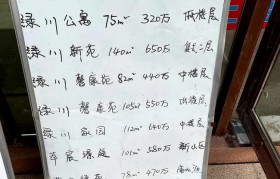 绿川公寓 75m² 320万 低楼层
绿川新苑 140m² 650万 二层
绿川馨康苑 82m² 440万 中楼层
绿川馨康苑 105m² 550万 楼层
绿川 园 112m² 640万 中楼层
辰 庭 101m² 580万 小区
m² 470万